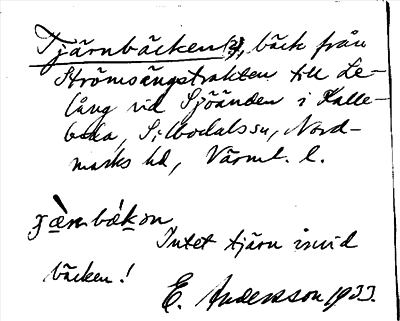 Tjärnbäcken(2), bäck från
Strömsängstrakten till Le-
lång vid Sjöänden i Kalle-
boda, Silbodalssn, Nord-
marks hd, Värml. l.
Intet tjärn invid
bäcken!
E. Andersson 1933.